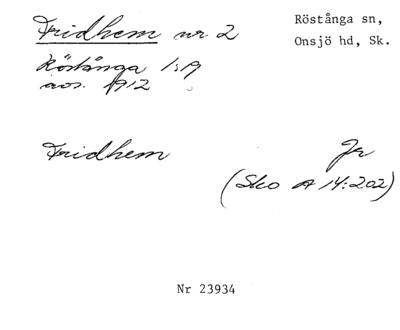 Fridhem nr 2
Röstånga sn,
Onsjö hd, Sk.
Röstånga 1:19
avs. 1912
Fridhem Jr
(Sko A 14:202)
Nr 23934